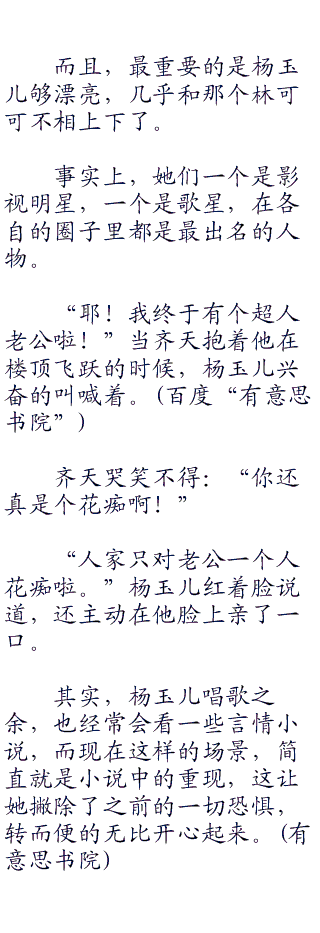 而且，最重要的是杨玉
儿够漂亮，几乎和那个林可
可不相上下了。
事实上，她们一个是影
视明星，一个是歌星，在各
自的圈子里都是最出名的人
物。
“耶！我终于有个超人
老公啦！”当齐天抱着他在
楼顶飞跃的时候，杨玉儿兴
奋的叫喊着。(百度“有意思
书院”)
齐天哭笑不得：“你还
真是个花痴啊！”
“人家只对老公一个人
花痴啦。”杨玉儿红着脸说
道，还主动在他脸上亲了一
口。
其实，杨玉儿唱歌之
余，也经常会看一些言情小
说，而现在这样的场景，简
直就是小说中的重现，这让
她撇除了之前的一切恐惧，
转而便的无比开心起来。(有
意思书院)